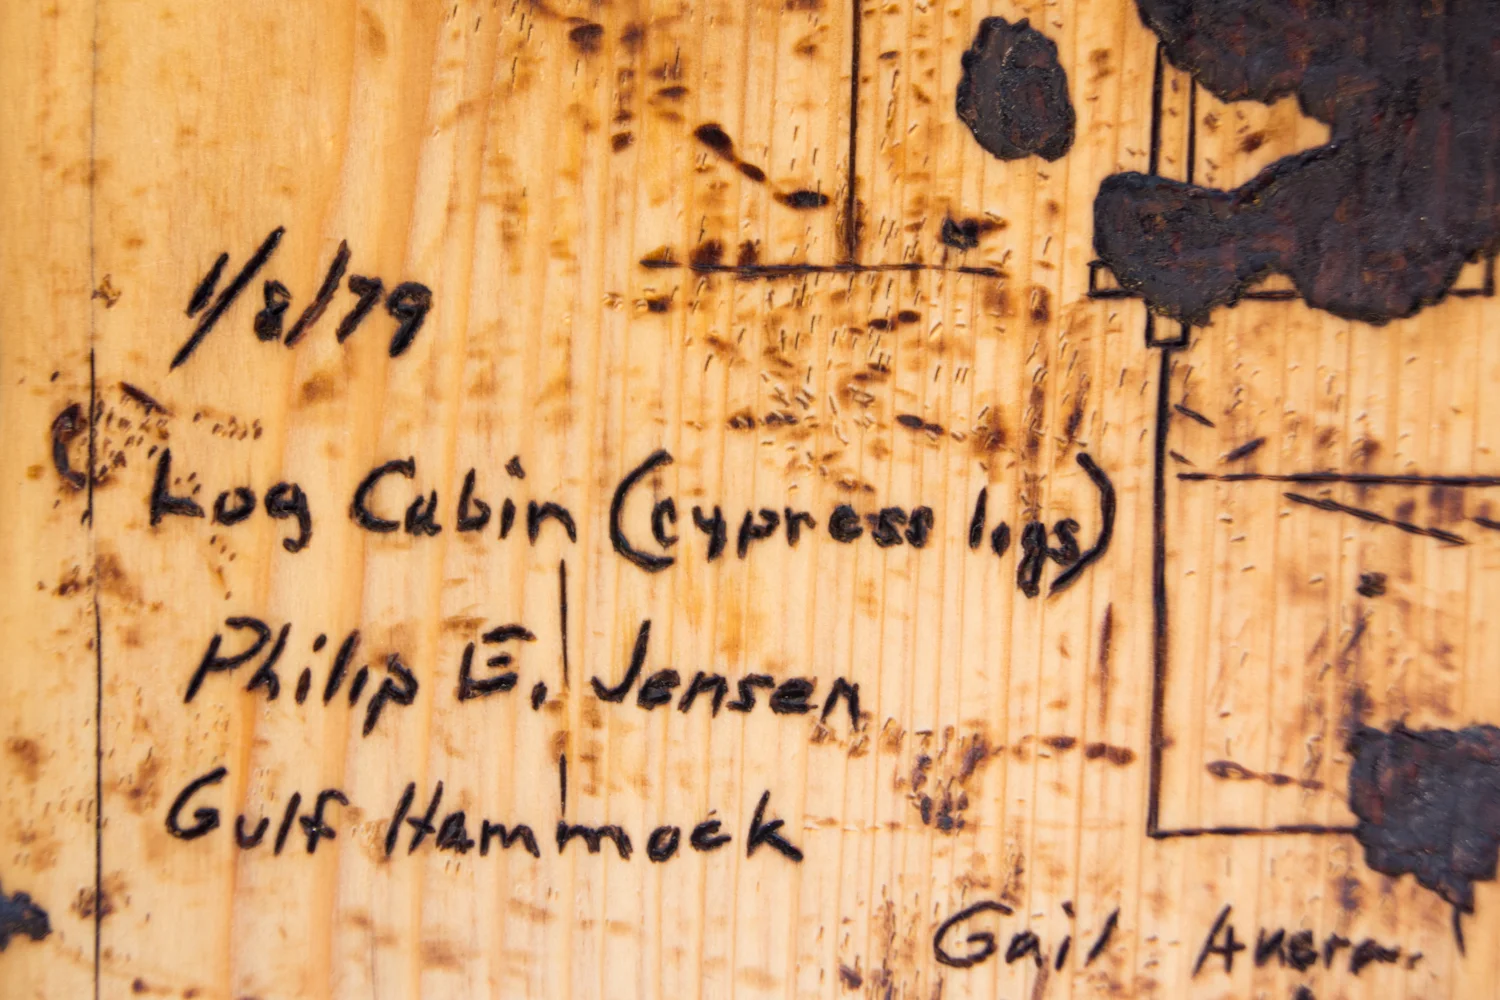 1/8/79
Log Cabin (cypress logs)
Philip E. Jensen
Gulf Hammock
Gail